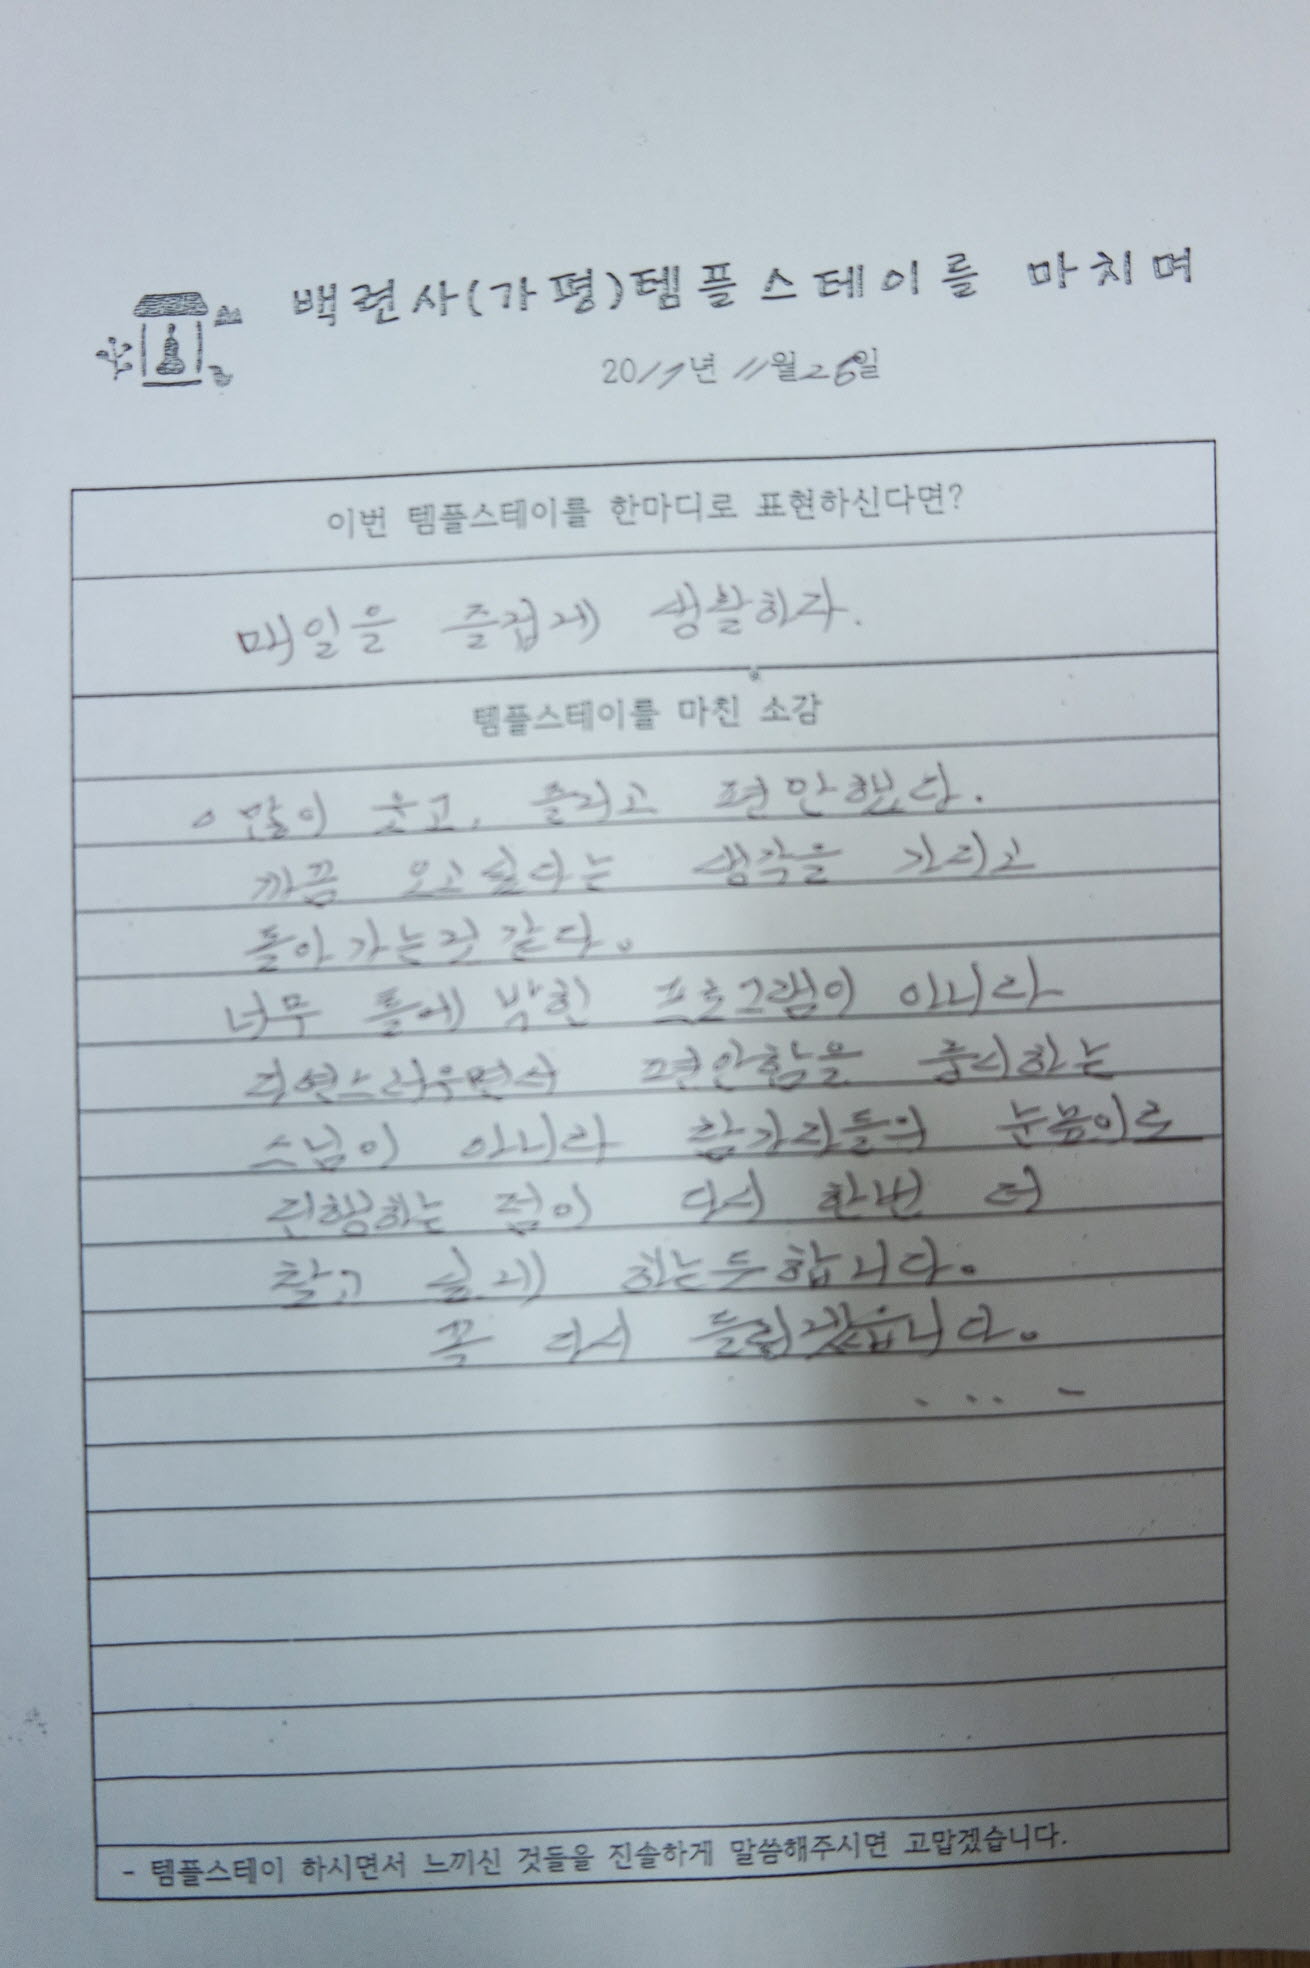 백련사(가평)템플스테이를 마치며
2017년 11월 26일
이번 템플스테이를 한마디로 표현하신다면?
매일을 즐겁게 생활하자.
템플스테이를 마친 소감
많이 웃고, 즐기고 편안했다.
가끔 오고 싶다는 생각을 가지고
돌아가는것 같다.
너무 틀에 박힌 프로그램이 아니라
자연스러우면서 편안함을 중시하는
스님이 아니라 참가자들의 눈높이로
진행하는 점이 다시 한번 더
찾고 싶게 하는듯 합니다.
꼭 다시 들리겠읍니다.
- 템플스테이 하시면서 느끼신 것들을 진솔하게 말씀해주시면 고맙겠습니다.